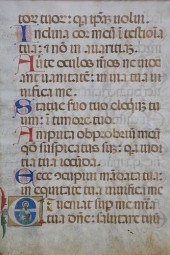 tor tuor: qa ipsuʒ volui.
Inclina cor meuʒ ī testiōia
tua: ⁊ nō in avaritiaʒ.
Averte oculos meos ne videāt
vanitatē: in via tua vi
vifica me.
Statue suo tuo eloquiuʒ tu
um: in timore tuo.
Amputa obprobriuʒ meū
qd suspicatus suʒ: qa iudi
tia tua iocūda.
Ecce ɔcupivi mādata tua:
in equitate tua vivifica me
Et veniat sup me mīa
tua dn̄e: salutare tuū